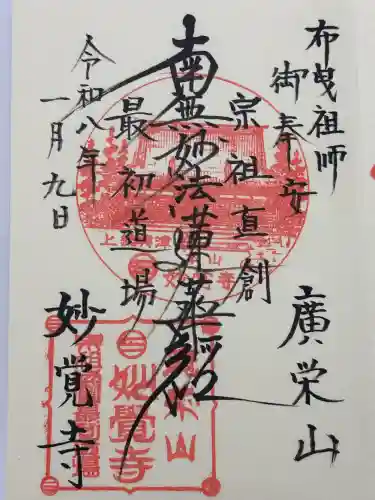 布曳祖師
御奉安
廣栄山
宗祖直創
南無妙法蓮華経
最初道場
令和八年
一月九日
妙覚寺
妙覺寺